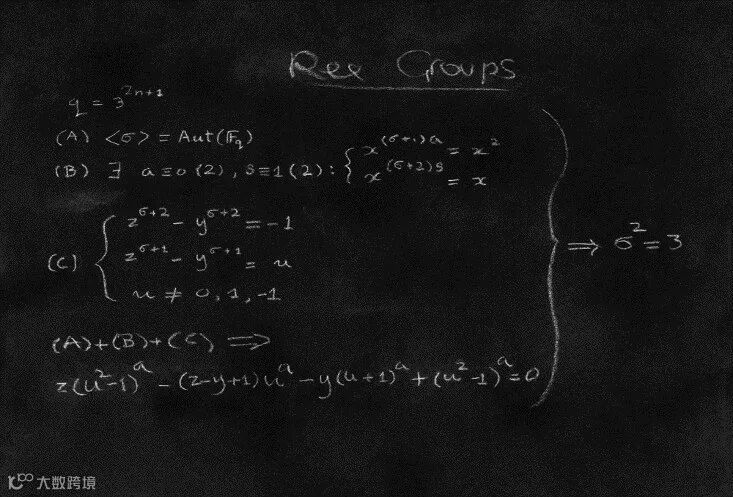 Ree Groups
q = 3^{2n+1}
(A) <σ> = Aut(𝔽_q)
(B) ∃ a≡0(2), s≡1(2): { x^{(σ+1)a} = x^2
x^{(σ+2)s} = x
(C) { z^{σ+2} - y^{σ+2} = -1
z^{σ+1} - y^{σ+1} = u
u ≠ 0, 1, -1
} ⟹ σ^2 = 3
(A)+(B)+(C) ⟹
z(u^2-1)^a - (z-y+1)u^a - y(u+1)^a + (u^2-1)^a = 0
大数跨境